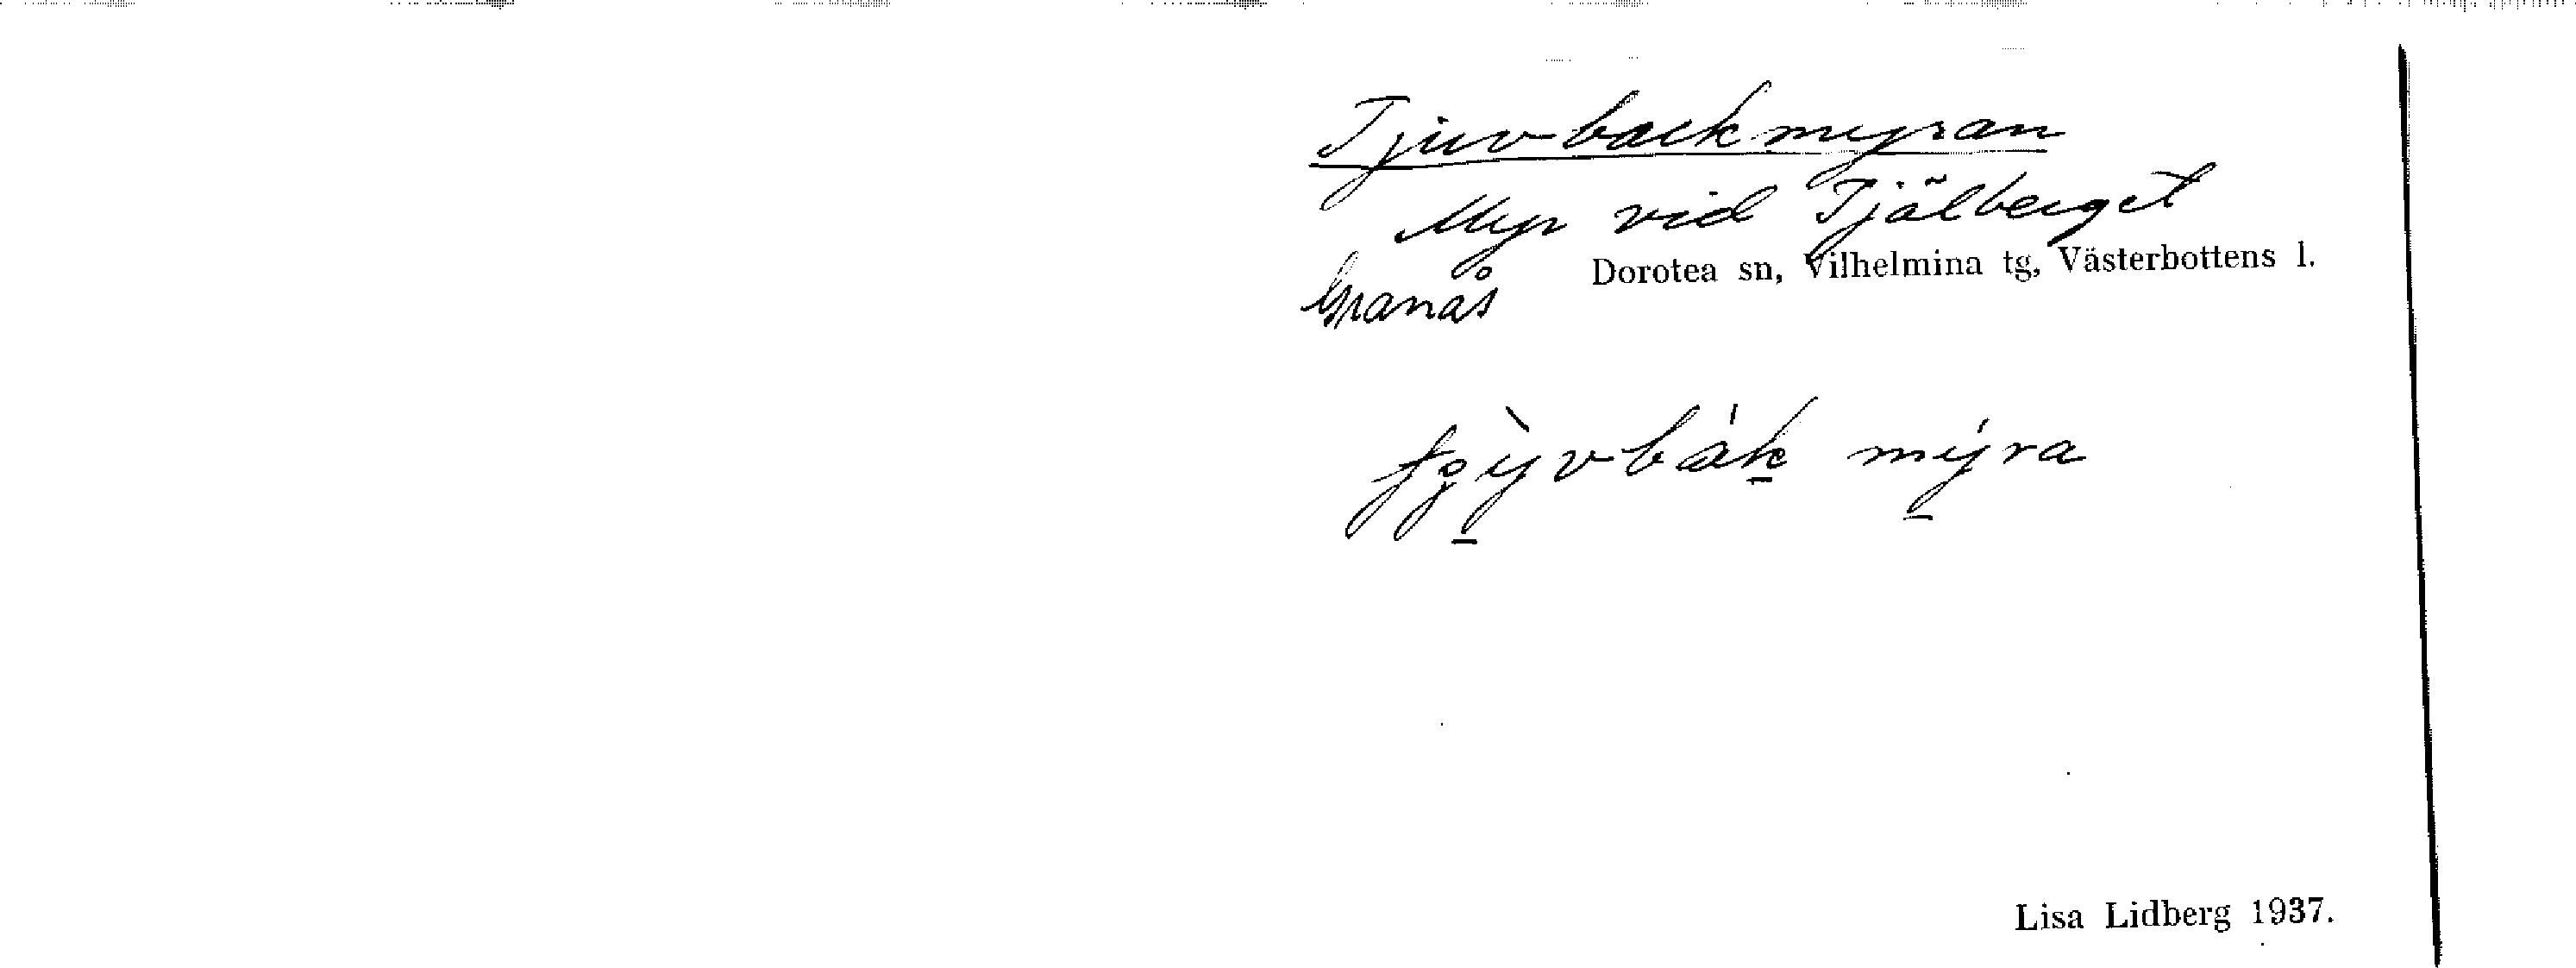 Tjuvbackmyran
Myr vid Tjälberget
Dorotea sn, Vilhelmina tg, Västerbottens l.
Granås
myra
Lisa Lidberg 1937.